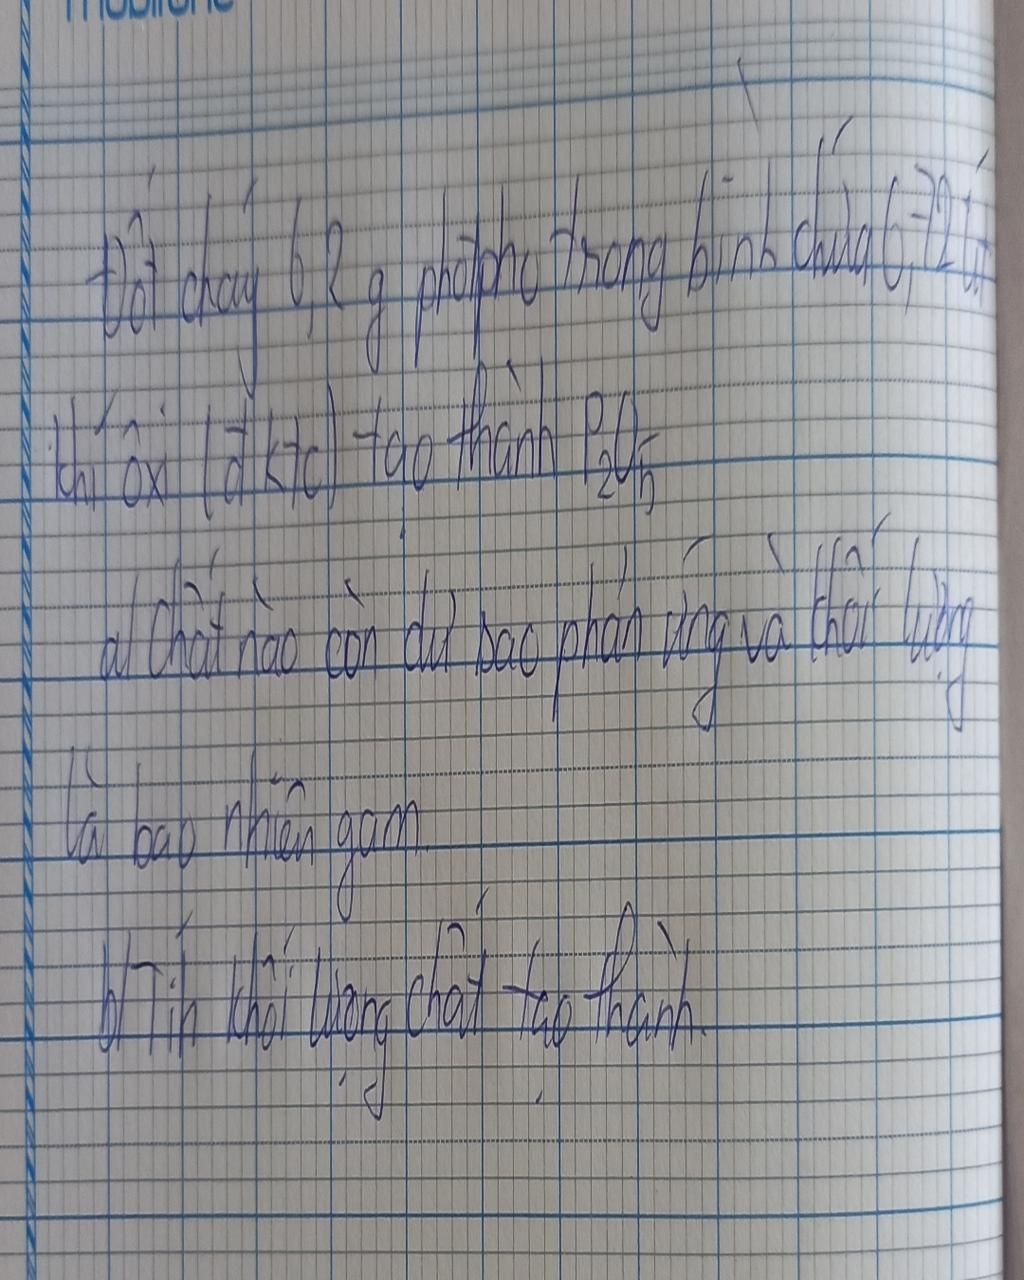 mobifone
Đốt cháy 6,2 g photpho trong bình chứa 6,72 lít
khí ôxi (đktc) tạo thành P2O5
a/ Chất nào còn dư sao phản ứng và khối lượng
là bao nhiên gam.
b/ Tíh khối lượng chất tạo thành.